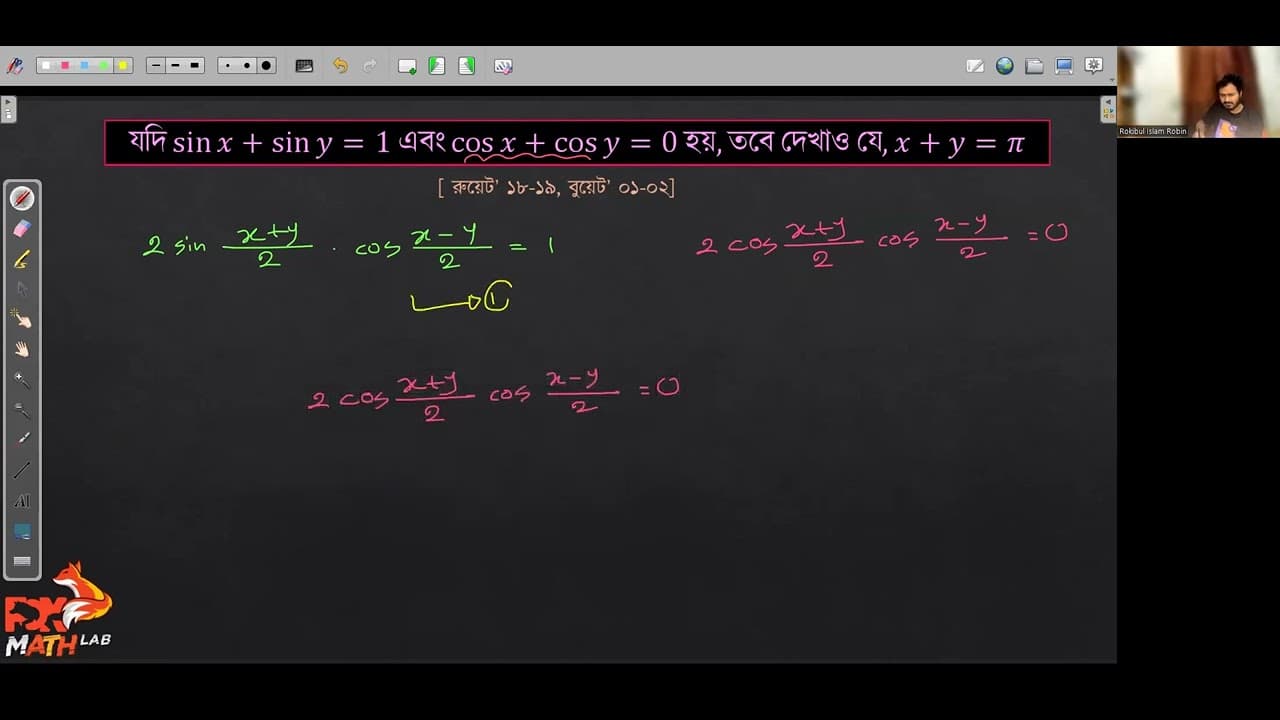 Rokibul Islam Robin
যদি sin x + sin y = 1 এবং cos x + cos y = 0 হয়, তবে দেখাও যে, x + y = π
[ রুয়েট' ১৮-১৯, বুয়েট' ০১-০২]
2 sin (x+y)/2 · cos (x-y)/2 = 1
2 cos (x+y)/2 cos (x-y)/2 = 0
1
2 cos (x+y)/2 cos (x-y)/2 = 0
AI
FOX
MATH LAB